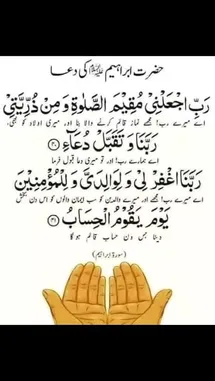 حضرت ابراہیم ﷺ کی دعا
رَبِّ اجْعَلْنِىْ مُقِيْمَ الصَّلٰوةِ وَمِنْ ذُرِّيَّتِىْ
اے میرے رب! مجھے نماز قائم کرنے والا بنا اور میری اولاد کو بھی،
رَبَّنَا وَ تَقَبَّلْ دُعَآءِ ﴿۴۰﴾
اے ہمارے رب! اور تو میری دعا قبول فرما
رَبَّنَا اغْفِرْ لِىْ وَ لِوَالِدَىَّ وَ لِلْمُؤْمِنِيْنَ
اے میرے رب! مجھے اور میرے والدین کو سب ایمان والوں کو اس دن بخش
يَوْمَ يَقُوْمُ الْحِسَابُ ﴿۴۱﴾
دینا جس دن حساب قائم ہو گا
(سورۃ ابراہیم)